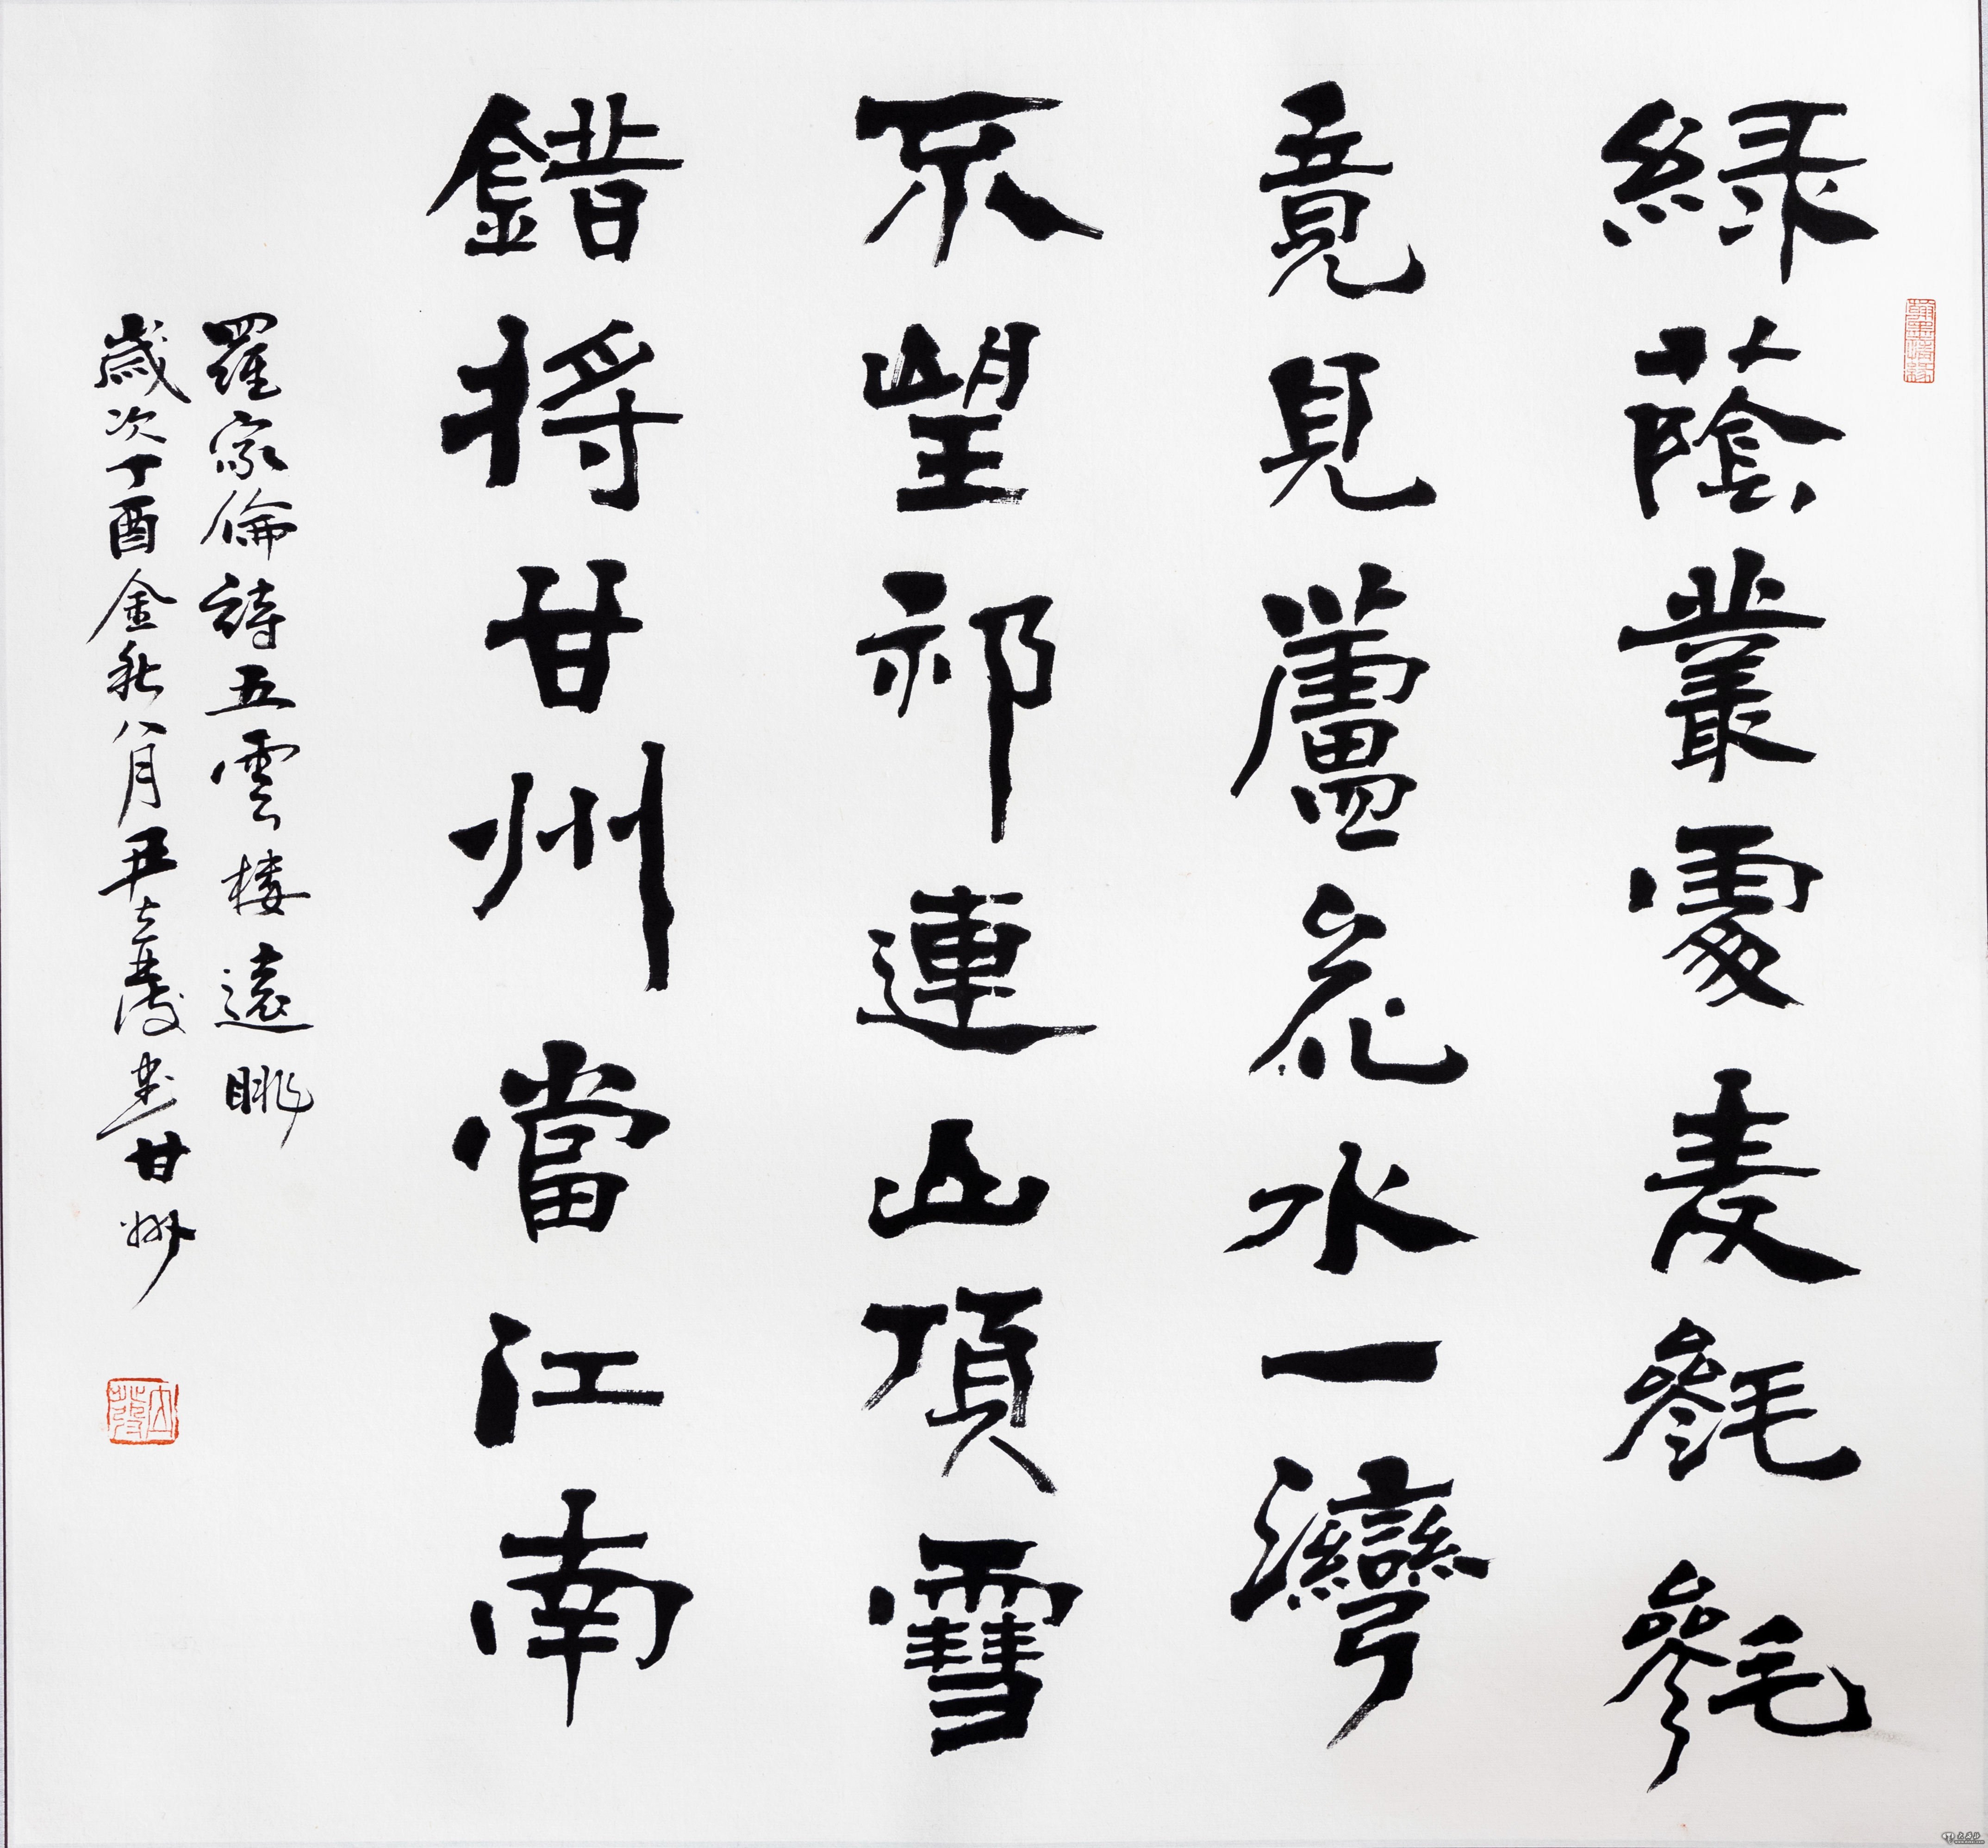 緑蔭叢麦毿毿
竟見蘆花水一灣
不望祁連山頂雪
錯将甘州當江南
羅家倫詩五雲樓遠眺
歲次丁酉金秋八月書甘州